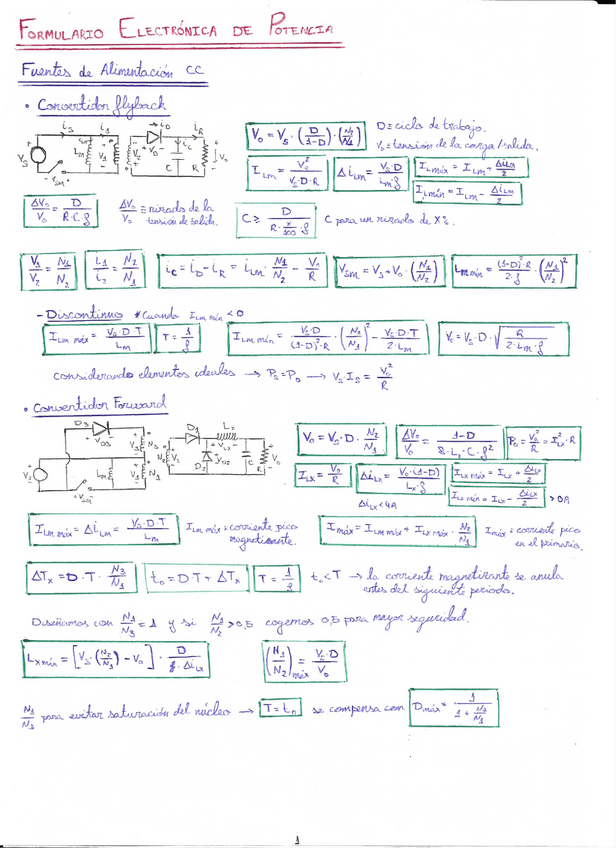 FORMULARIO ELECTRÓNICA DE POTENCIA
Fuentes de Alimentación CC
• Convertidor flyback
V₀ = Vs · (D/(1-D)) · (N₂/N₁)
D ≡ ciclo de trabajo.
V₀ ≡ tensión de la carga/salida.
I_Lm = V₀²/(Vs·D·R)
Δi_Lm = Vs·D/(Lm·f)
I_Lm máx = I_Lm + Δi_Lm/2
I_Lm mín = I_Lm - Δi_Lm/2
ΔV₀/V₀ = D/(R·C·f)
ΔV₀/V₀ ≡ rizado de la tensión de salida.
C ≥ D/(R · X/100 · f)
C para un rizado de X%.
V₁/V₂ = N₁/N₂
i₁/i₂ = N₂/N₁
i_C = i_D - i_R = i_Lm · N₁/N₂ - V₀/R
V_sm = Vs + V₀ · (N₁/N₂)
Lm mín = (1-D)²·R/(2·f) · (N₁/N₂)²
- Discontinuo * Cuando I_Lm mín < 0
I_Lm máx = Vs·D·T/Lm
T = 1/f
I_Lm mín = Vs·D/((1-D)²·R) · (N₂/N₁)² - Vs·D·T/(2·Lm)
V₀ = Vs·D · √(R/(2·Lm·f))
considerando elementos ideales → Ps = P₀ → Vs·Is = V₀²/R
• Convertidor Forward
V₀ = Vs · D · N₂/N₁
ΔV₀/V₀ = (1-D)/(8·Lx·C·f²)
P₀ = V₀²/R = I²_Lx·R
I_Lx = V₀/R
Δi_Lx = V₀·(1-D)/(Lx·f)
I_Lx máx = I_Lx + Δi_Lx/2
Δi_Lx < 4A
I_Lx mín = I_Lx - Δi_Lx/2 > 0A
I_Lm máx = Δi_Lm = Vs·D·T/Lm
I_Lm máx ≡ corriente pico magnetizante.
I máx = I_Lm máx + I_Lx máx · N₂/N₁
I máx ≡ corriente pico en el primario.
ΔTx = D · T · N₃/N₁
t₀ = D·T + ΔTx
T = 1/f
t₀ < T → la corriente magnetizante se anula
antes del siguiente periodo.
Diseñamos con N₁/N₃ = 1 y si N₁/N₂ > 0,5 cogemos 0,5 para mayor seguridad.
Lx mín = [Vs·(N₂/N₁) - V₀] · D/(f·Δi_Lx)
(N₁/N₂)máx = Vs·D/V₀
N₁/N₃ para evitar saturación del núcleo → T = t₀ se compensa con D máx = 1/(1 + N₃/N₁)
1